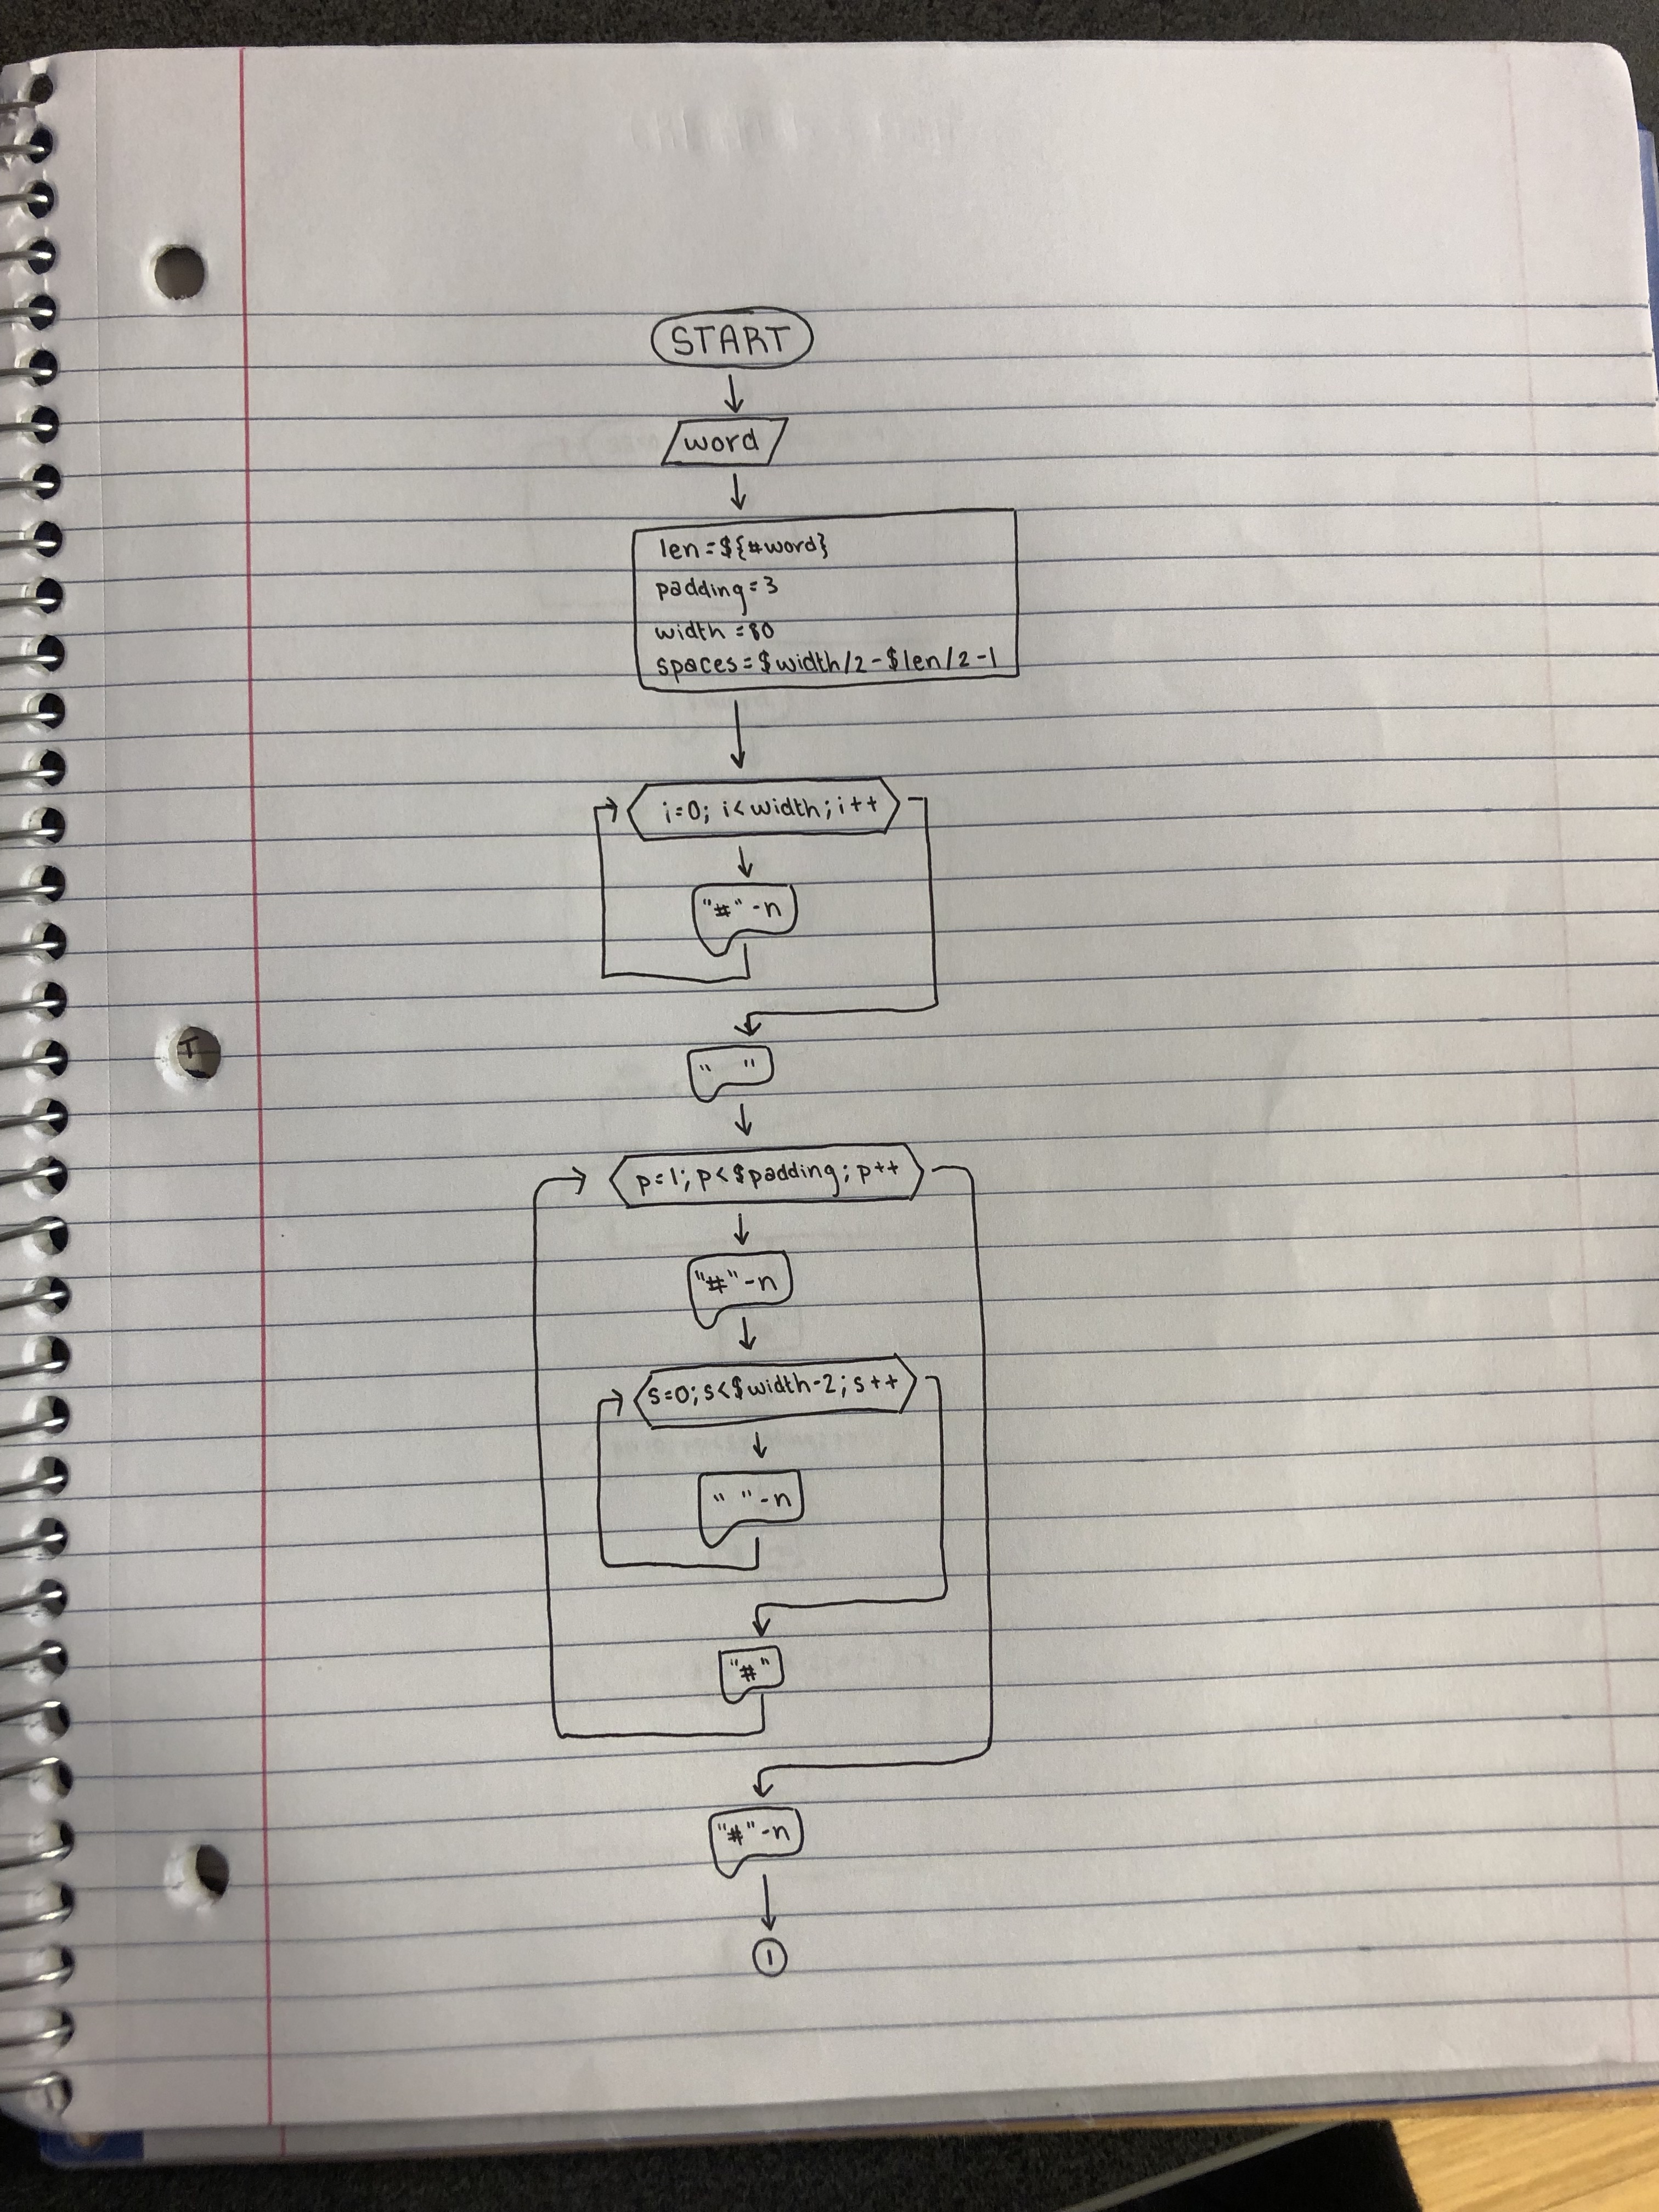 START
word
len=${#word}
padding=3
width=80
spaces=$width/2-$len/2-1
i=0; i<width; i++
"#" -n
" "
p=1; p<$padding; p++
"#"-n
s=0; s<$width-2; s++
" "-n
"#"
"#"-n
1